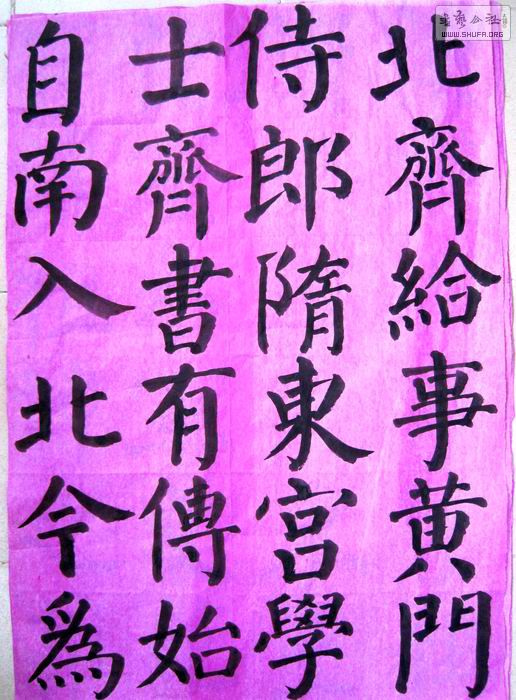 北齊給事黄門
侍郎隋東宮學
士齊書有傳始
自南入北今爲
WWW.SHUFA.ORG